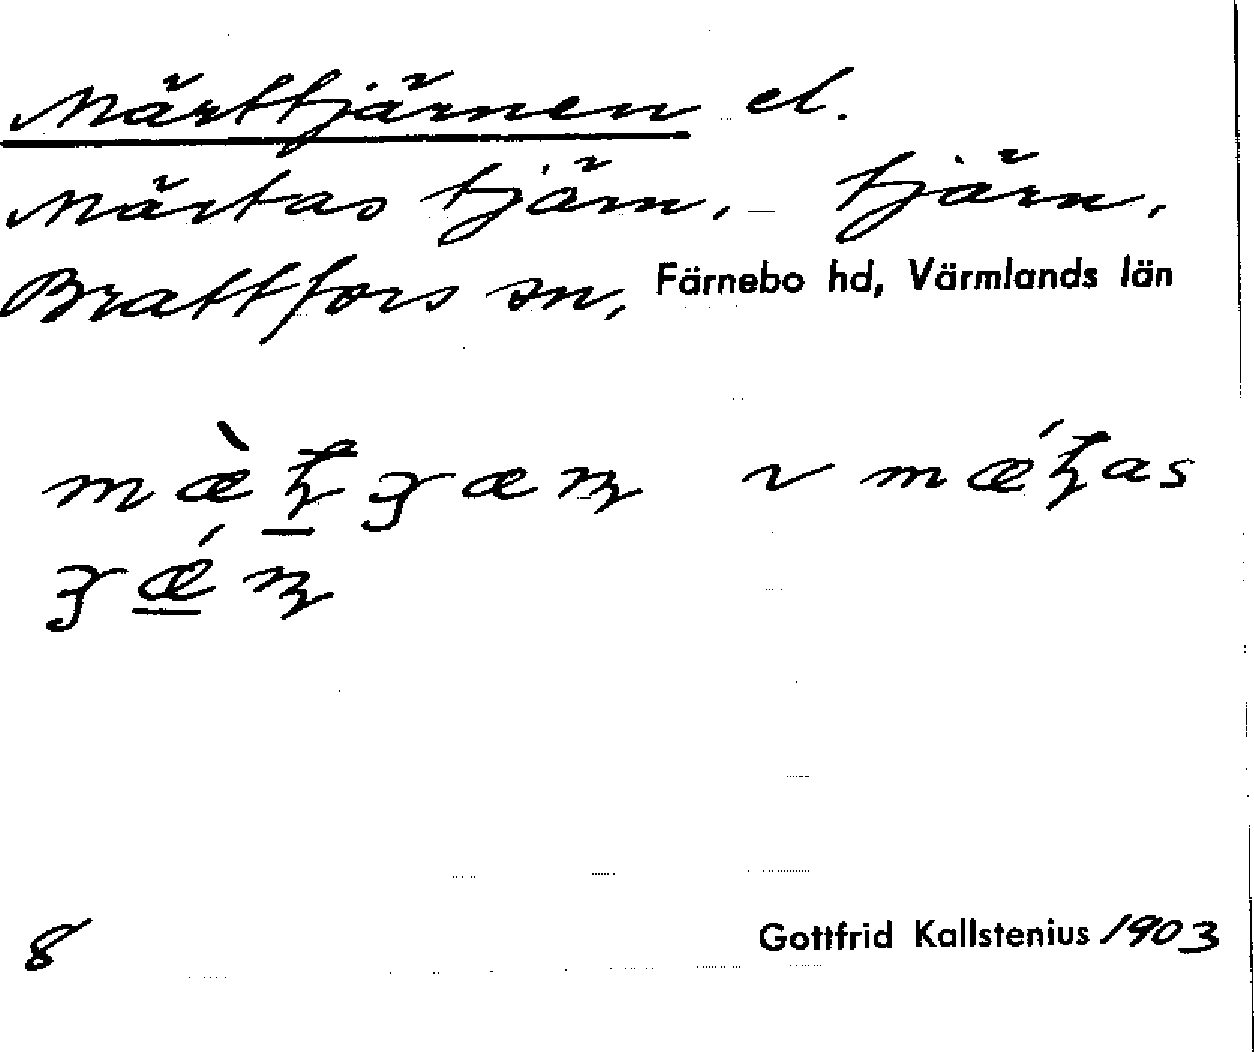 Märttjärnen el.
Märtas tjärn, – tjärn,
Brattfors sn, Färnebo hd, Värmlands län
8
Gottfrid Kallstenius 1903